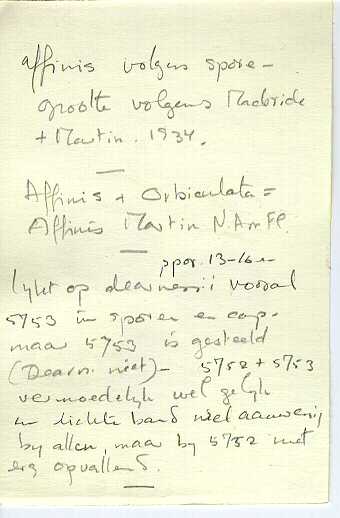 Affinis volgens spore-
grootte volgens Macbride
+ Martin. 1934.
Affinis + Orbiculata =
Affinis Martin N. Am Fl.
spor. 13-16
lijkt op dearnessii vooral
5753 in sporen en cap.
maar 5753 is gesteeld
(Dearn. niet) - 5752 + 5753
vermoedelijk wel gelijk
en lichte band wel aanwezig
by allen, maar by 5752 niet
erg opvallend.